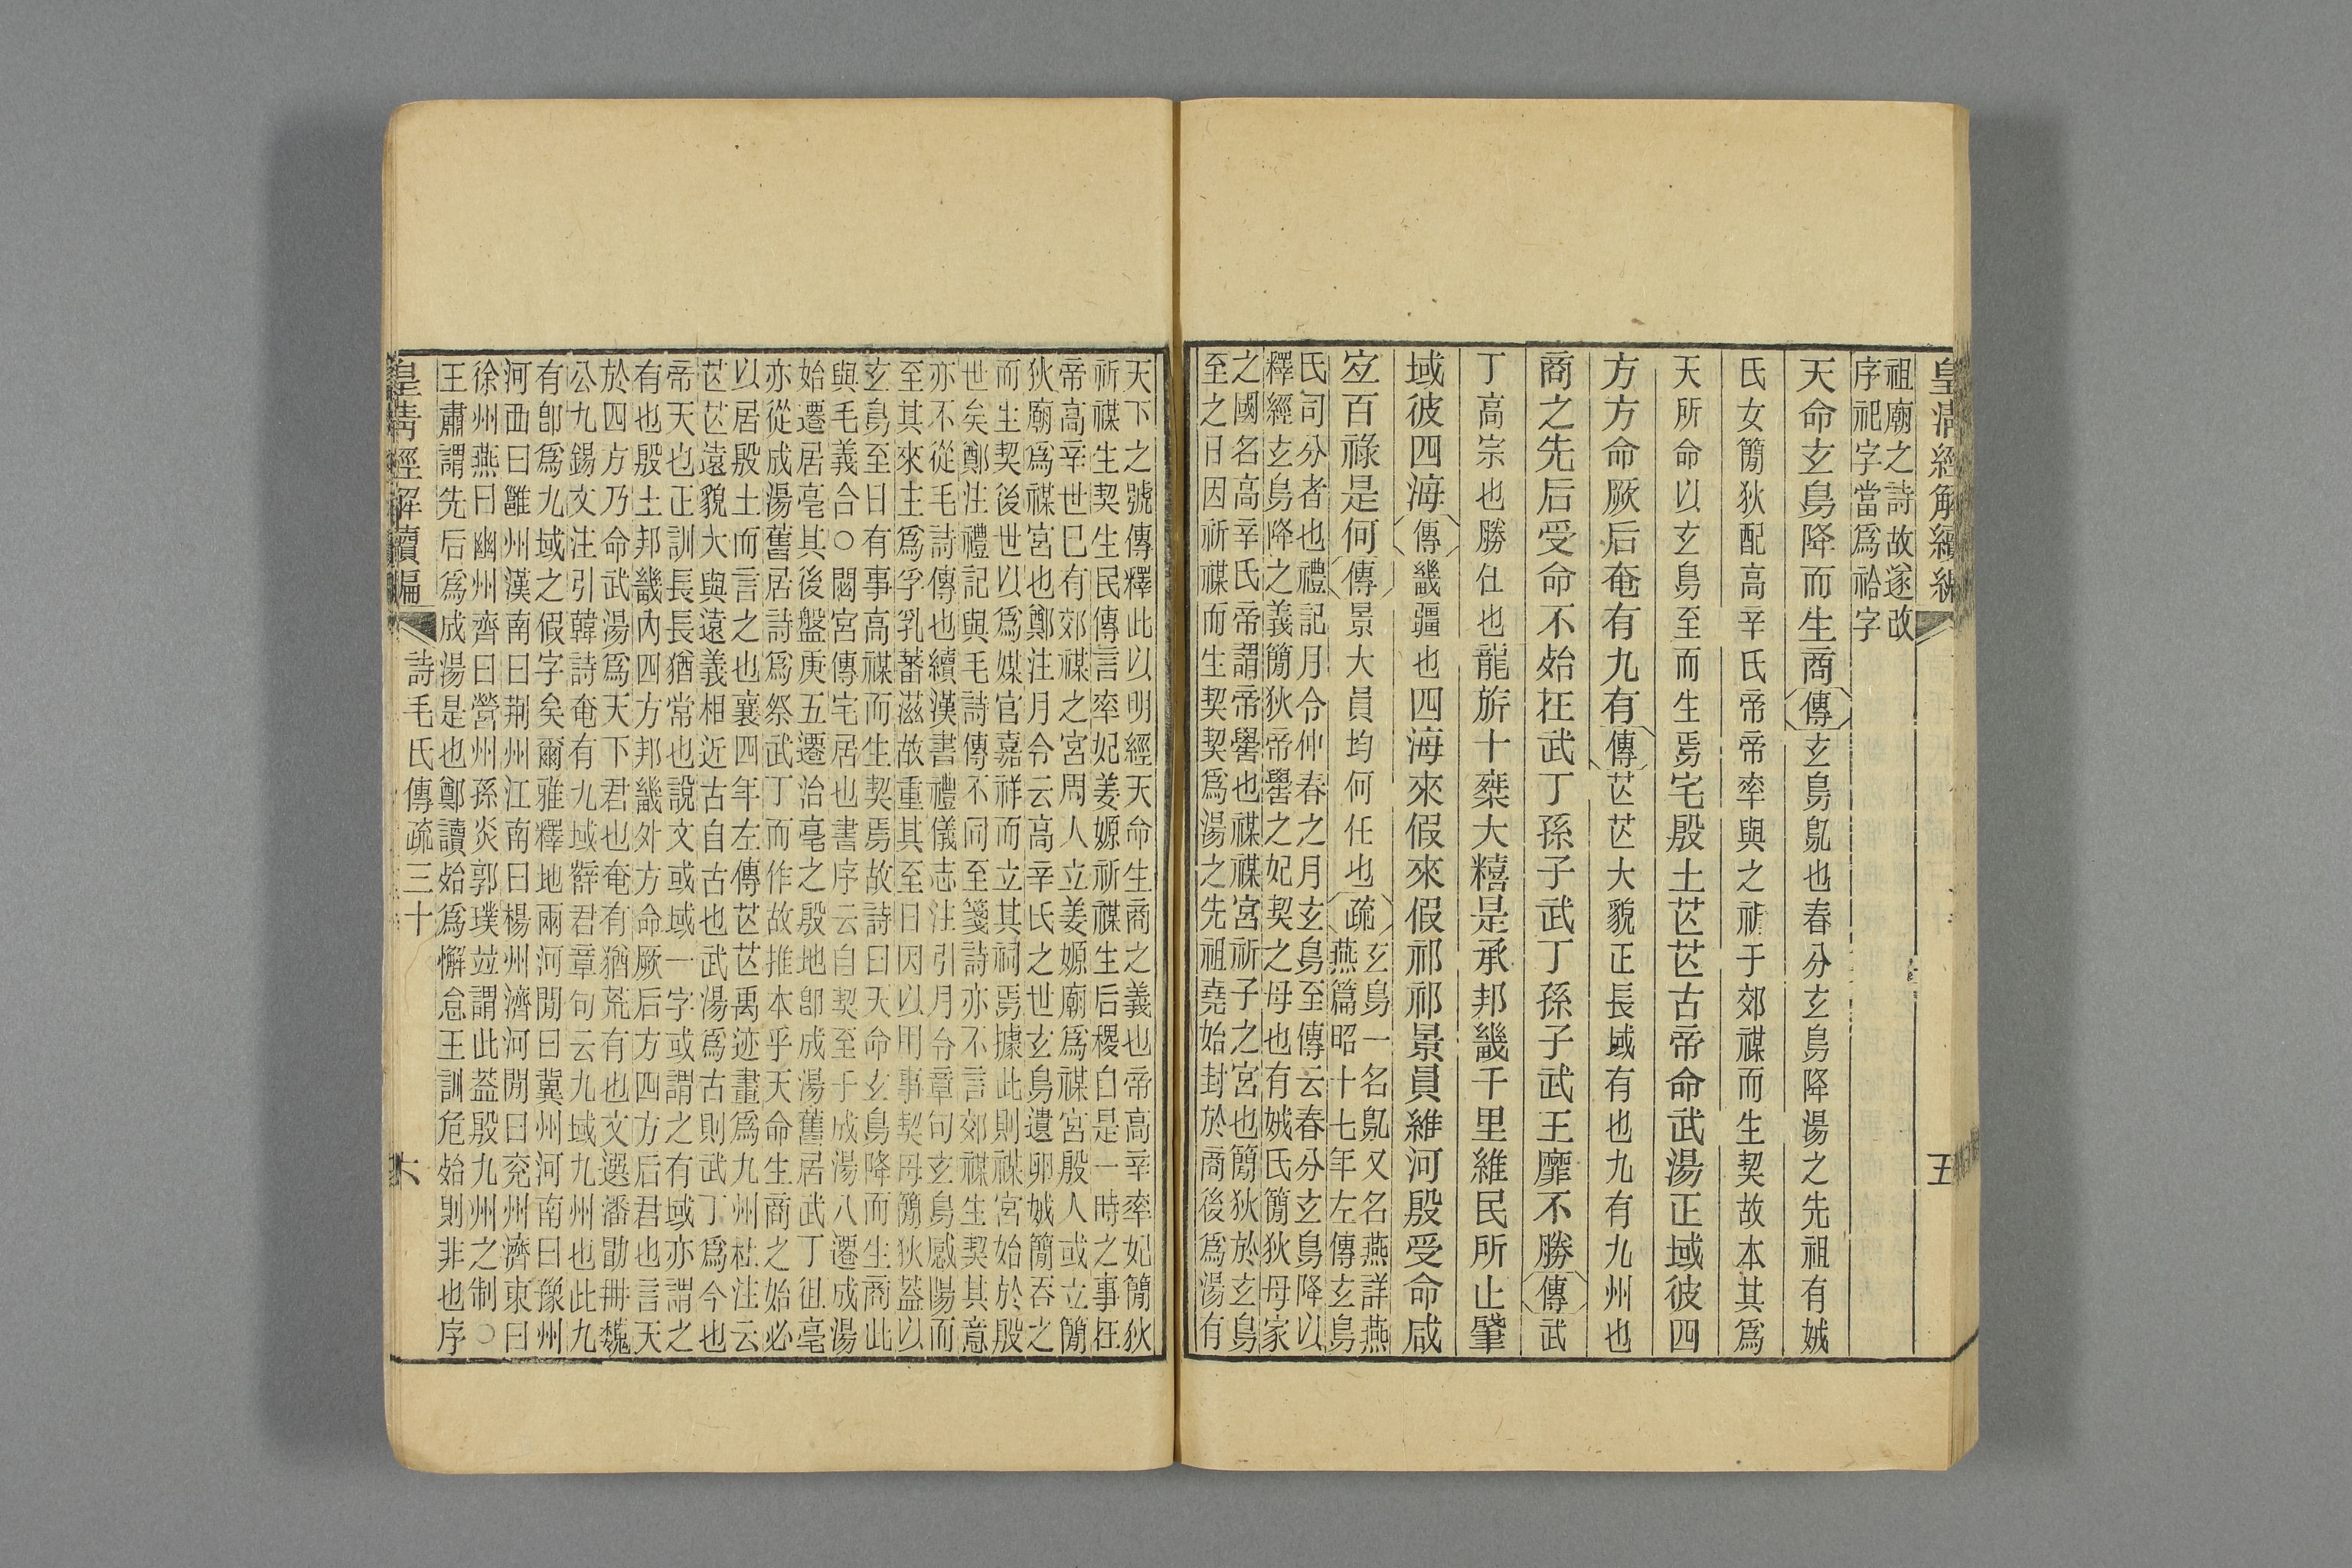 皇清經解續編
五
祖廟之詩故遂改
序祀字當爲祫字
天命玄鳥降而生商傳玄鳥鳦也春分玄鳥降湯之先祖有娀
氏女簡狄配高辛氏帝帝率與之祈于郊禖而生契故本其爲
天所命以玄鳥至而生焉宅殷土芒芒古帝命武湯正域彼四
方方命厥后奄有九有傳芒芒大貌正長域有也九有九州也
商之先后受命不殆在武丁孫子武丁孫子武王靡不勝傳武
丁高宗也勝任也龍旂十乘大糦是承邦畿千里維民所止肇
域彼四海傳畿疆也四海來假來假祁祁景員維河殷受命咸
宜百祿是何傳景大員均何任也疏玄鳥一名鳦又名燕詳燕
燕篇昭十七年左傳玄鳥
氏司分者也禮記月令仲春之月玄鳥至傳云春分玄鳥降以
釋經玄鳥降之義簡狄帝嚳之妃契之母也有娀氏簡狄母家
之國名高辛氏帝謂帝嚳也禖禖宮祈子之宮也簡狄於玄鳥
至之日因祈禖而生契契爲湯之先祖堯始封於商後爲湯有
天下之號傳釋此以明經天命生商之義也帝高辛率妃簡狄
祈禖生契生民傳言率妃姜嫄祈禖生后稷自是一時之事在
帝高辛世已有郊禖之宮周人立姜嫄廟爲禖宮殷人或立簡
狄廟爲禖宮也鄭注月令云高辛氏之世玄鳥遺卵娀簡吞之
而生契後世以爲媒官嘉祥而立其祠焉據此則禖宮始於殷
世矣鄭注禮記與毛詩傳不同至箋詩亦不言郊禖生契其意
亦不從毛詩傳也續漢書禮儀志注引月令章句玄鳥感陽而
至其來主爲孚乳蕃滋故重其至日因以用事契母簡狄蓋以
玄鳥至日有事高禖而生契焉故詩曰天命玄鳥降而生商此
與毛義合○閟宮傳宅居也書序云自契至于成湯八遷成湯
始遷居亳其後盤庚五遷治亳之殷地卽成湯舊居武丁徂亳
亦從成湯舊居詩爲祭武丁而作故推本乎天命生商之始必
以居殷土而言之也襄四年左傳芒芒禹迹畫爲九州杜注云
芒芒遠貌大與遠義相近古自古也武湯爲古則武丁爲今也
帝天也正訓長長猶常也說文或域一字或謂之有域亦謂之
有也殷土邦畿內四方邦畿外方命厥后方四方后君也言天
於四方乃命武湯爲天下君也奄有猶荒有也文選潘勖冊魏
公九錫文注引韓詩奄有九域薛君章句云九域九州也此九
有卽爲九域之假字矣爾雅釋地兩河閒曰冀州河南曰豫州
河西曰雝州漢南曰荆州江南曰楊州濟河閒曰兗州濟東曰
徐州燕曰幽州齊曰營州孫炎郭璞竝謂此蓋殷九州之制○
王肅謂先后爲成湯是也鄭讀殆爲懈怠王訓危殆則非也序
皇清經解續編
詩毛氏傳疏三十
六